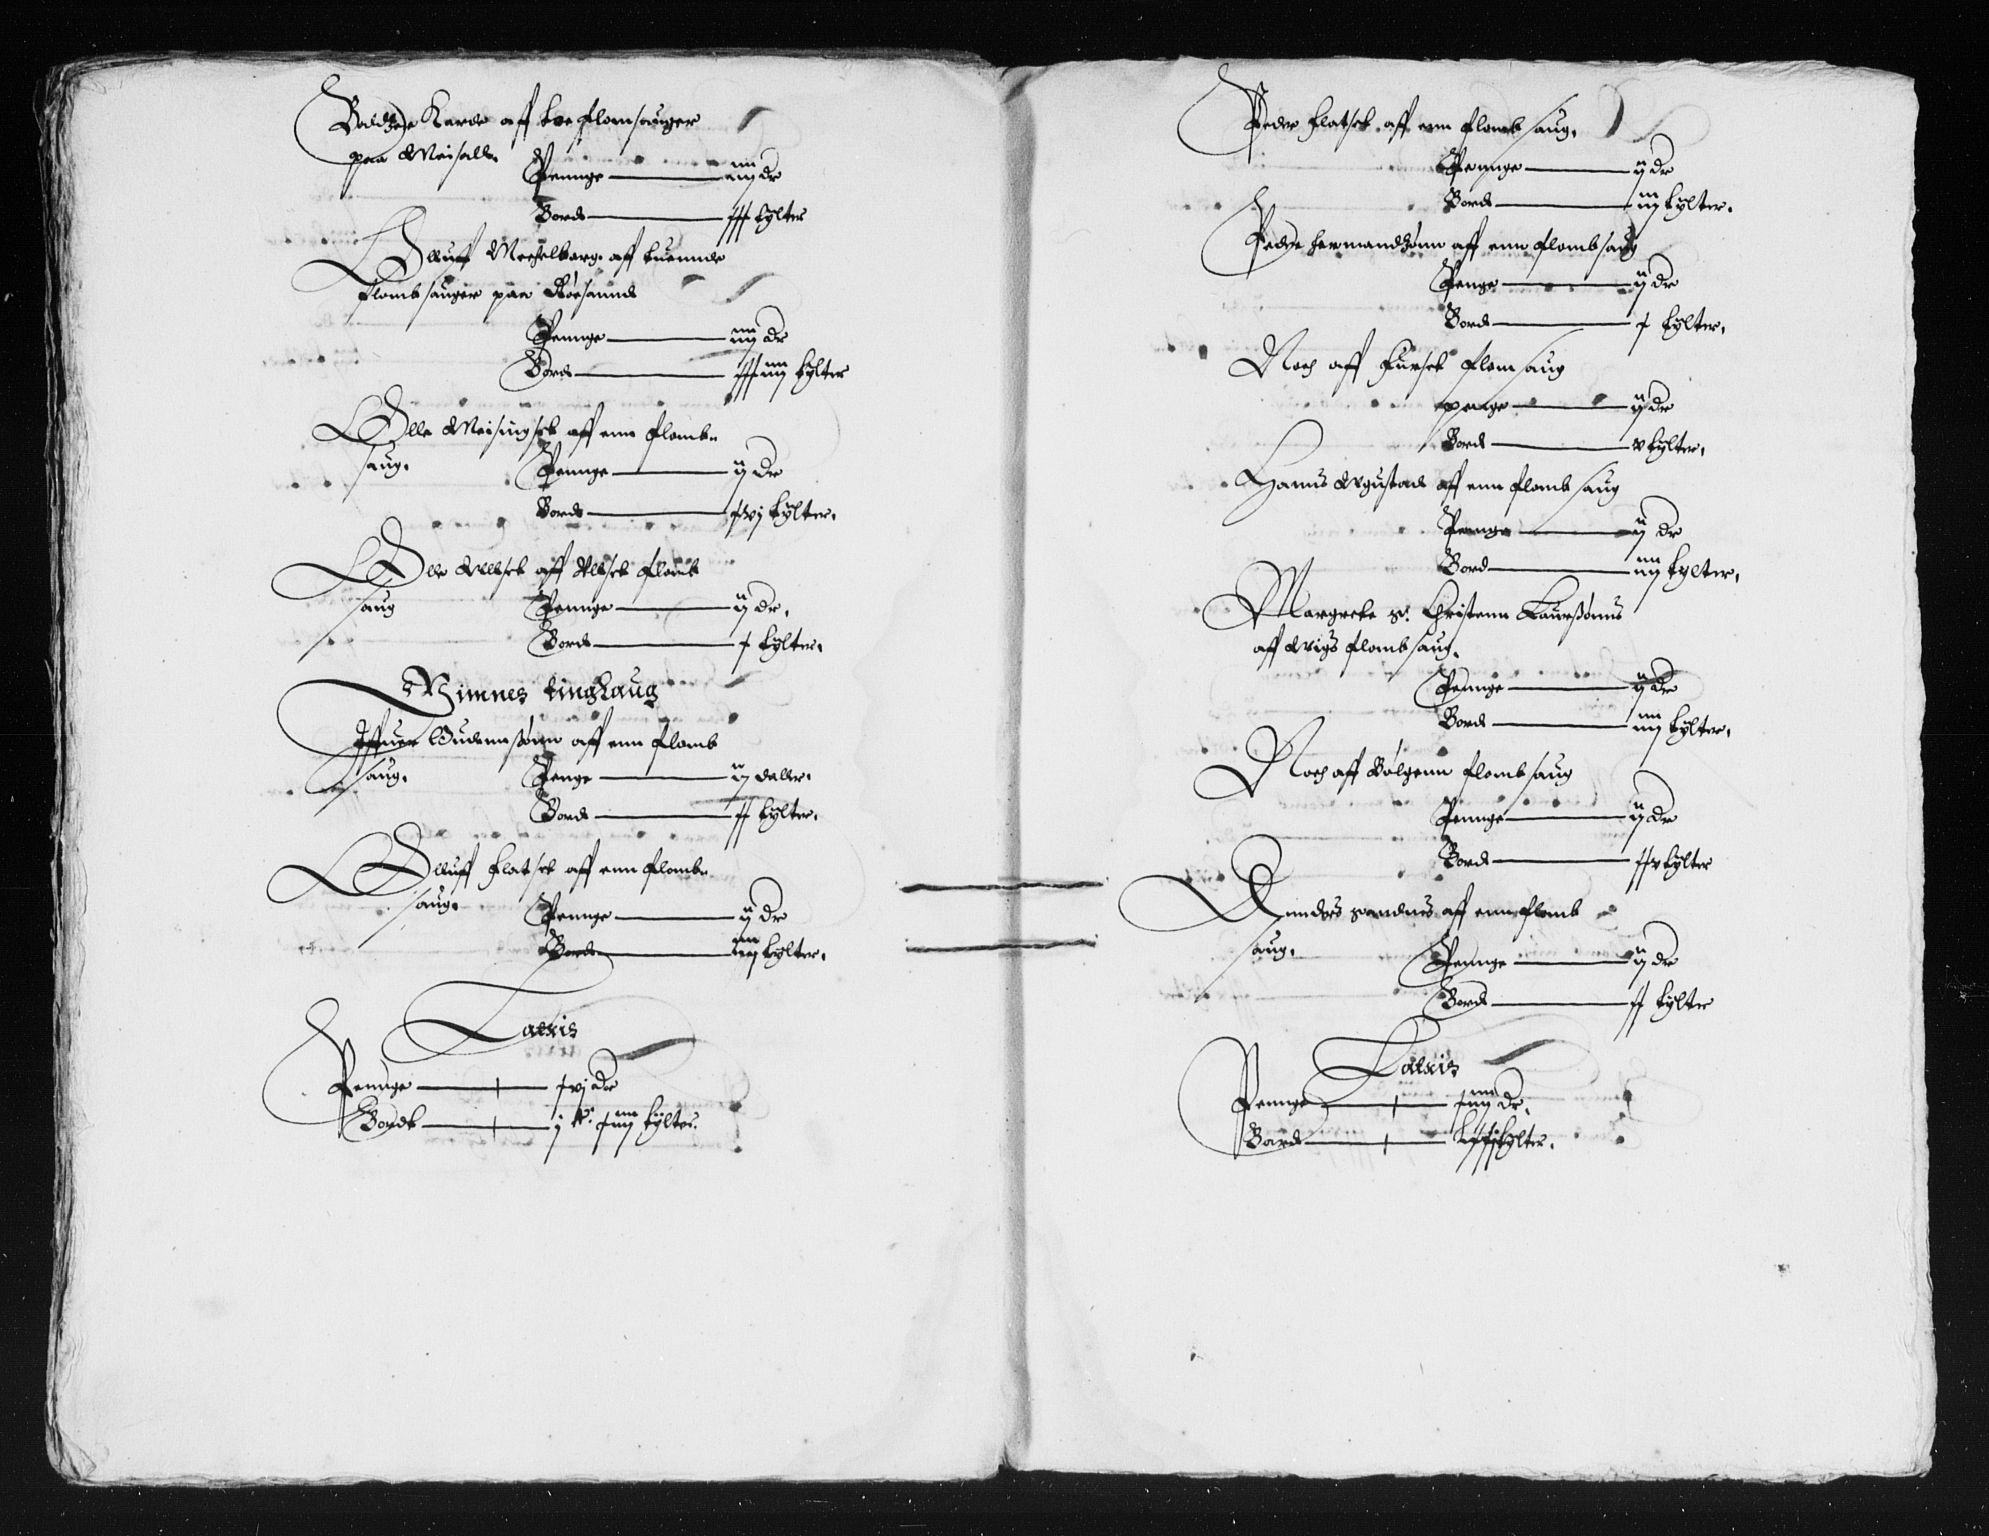 Karde aff toe flomsauger
paa Meisall.
Pennge iiij dr
Bordt xxx tylter
Oluff Mechelborg aff tuennde
flombsauger paa Roesannd
Pennge iiij dr
Bord xxxiiij tylter
Olle Meisingset aff enn flomb-
saug.
Pennge ij dr
Bordt xvj tylter.
Olle Aluset aff Aluset flomb
saug
Pennge ij dr.
Bordt x tylter.
Gimnes tinghaug
Iffuer Gudmnssønn aff enn flomb
saug.
Penge ij daller.
Bordt xx tylter.
Oluff Flatset aff enn flomb-
saug.
Pennge ij dr
Bordt iiij tylter.
Latus
Pennge xvj dr
Bordt j c xiiij tylter.
Peder Flatset aff enn flomb saug.
Pennge ij dr
Bord iij tylter.
Peder Hermandssønn aff enn flombsaug
Penge ij dr
Bord x tylter.
Noch aff Furset flomsaug
penge ij dr
Bord v tylter.
Hanns Augustad aff enn flomb saug
Pennge ij dr
Bord iiij tylter.
Margrete S. Christenn Laurssønns
aff Wigs flombsaug.
Pennge ij dr
Bord iiij tylter.
Noch aff Bølgenn flombsaug
Pennge ij dr
Bord xxv tylter
Annders aff enn flomb
saug.
Pennge ij dr
Bord xx tylter
Latus
Pennge xiiij dr.
Bord tylter.